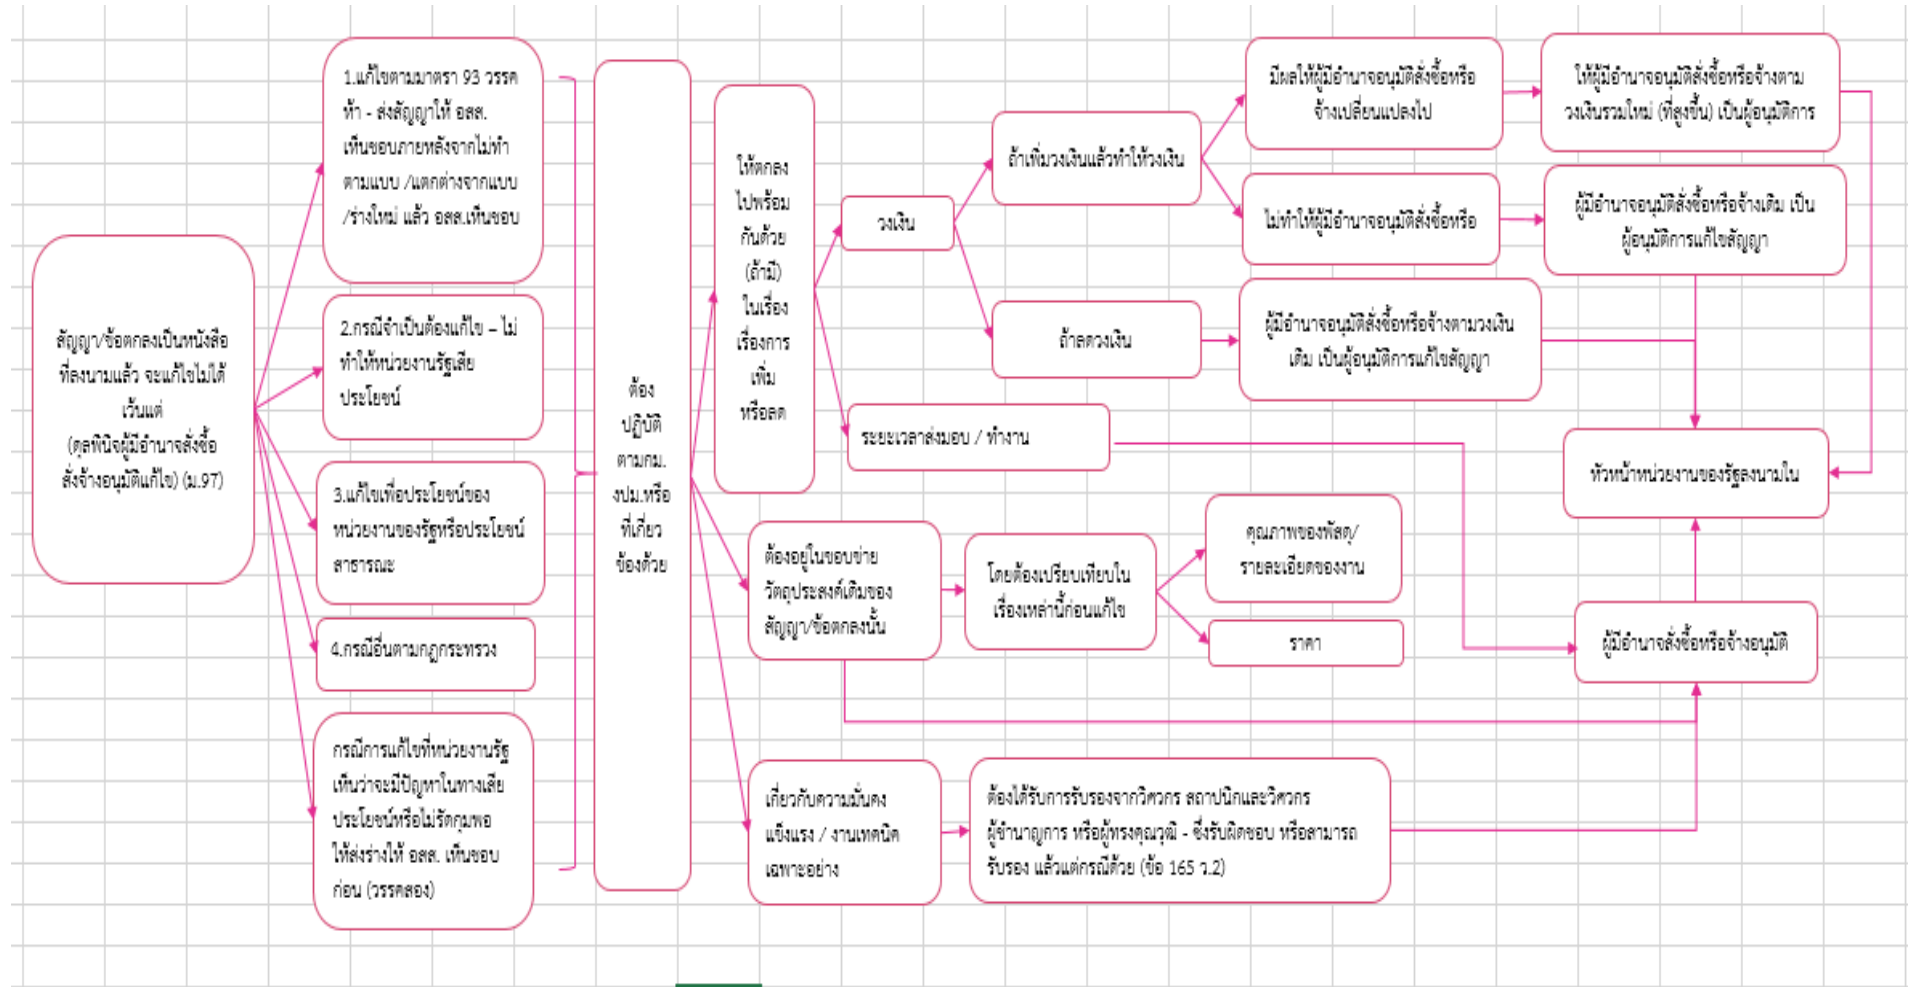 สัญญา/ข้อตกลงเป็นหนังสือ
ที่ลงนามแล้ว จะแก้ไขไม่ได้
เว้นแต่
(ดุลพินิจผู้มีอำนาจสั่งซื้อ
สั่งจ้างอนุมัติแก้ไข) (ม.97)
1.แก้ไขตามมาตรา 93 วรรค
ห้า - ส่งสัญญาให้ อสส.
เห็นชอบภายหลังจากไม่ทำ
ตามแบบ /แตกต่างจากแบบ
/ร่างใหม่ แล้ว อสส.เห็นชอบ
2.กรณีจำเป็นต้องแก้ไข – ไม่
ทำให้หน่วยงานรัฐเสีย
ประโยชน์
3.แก้ไขเพื่อประโยชน์ของ
หน่วยงานของรัฐหรือประโยชน์
สาธารณะ
4.กรณีอื่นตามกฎกระทรวง
กรณีการแก้ไขที่หน่วยงานรัฐ
เห็นว่าจะมีปัญหาในทางเสีย
ประโยชน์หรือไม่รัดกุมพอ
ให้ส่งร่างให้ อสส. เห็นชอบ
ก่อน (วรรคสอง)
ต้อง
ปฏิบัติ
ตามกม.
งปม.หรือ
ที่เกี่ยว
ข้องด้วย
ให้ตกลง
ไปพร้อม
กันด้วย
(ถ้ามี)
ในเรื่อง
เรื่องการ
เพิ่ม
หรือลด
วงเงิน
ถ้าเพิ่มวงเงินแล้วทำให้วงเงิน
มีผลให้ผู้มีอำนาจอนุมัติสั่งซื้อหรือ
จ้างเปลี่ยนแปลงไป
ให้ผู้มีอำนาจอนุมัติสั่งซื้อหรือจ้างตาม
วงเงินรวมใหม่ (ที่สูงขึ้น) เป็นผู้อนุมัติการ
ไม่ทำให้ผู้มีอำนาจอนุมัติสั่งซื้อหรือ
ผู้มีอำนาจอนุมัติสั่งซื้อหรือจ้างเดิม เป็น
ผู้อนุมัติการแก้ไขสัญญา
ถ้าลดวงเงิน
ผู้มีอำนาจอนุมัติสั่งซื้อหรือจ้างตามวงเงิน
เดิม เป็นผู้อนุมัติการแก้ไขสัญญา
ระยะเวลาส่งมอบ / ทำงาน
หัวหน้าหน่วยงานของรัฐลงนามใน
ต้องอยู่ในขอบข่าย
วัตถุประสงค์เดิมของ
สัญญา/ข้อตกลงนั้น
โดยต้องเปรียบเทียบใน
เรื่องเหล่านี้ก่อนแก้ไข
คุณภาพของพัสดุ/
รายละเอียดของงาน
ราคา
ผู้มีอำนาจสั่งซื้อหรือจ้างอนุมัติ
เกี่ยวกับความมั่นคง
แข็งแรง / งานเทคนิค
เฉพาะอย่าง
ต้องได้รับการรับรองจากวิศวกร สถาปนิกและวิศวกร
ผู้ชำนาญการ หรือผู้ทรงคุณวุฒิ - ซึ่งรับผิดชอบ หรือสามารถ
รับรอง แล้วแต่กรณีด้วย (ข้อ 165 ว.2)